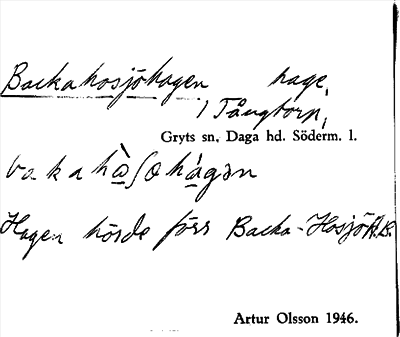 Backahosjöhagen hage,
i Tångtorp,
Gryts sn, Daga hd. Söderm. l.
bakahὰʃohágən
Hagen hörde förr Backa-Hosjön.
Artur Olsson 1946.